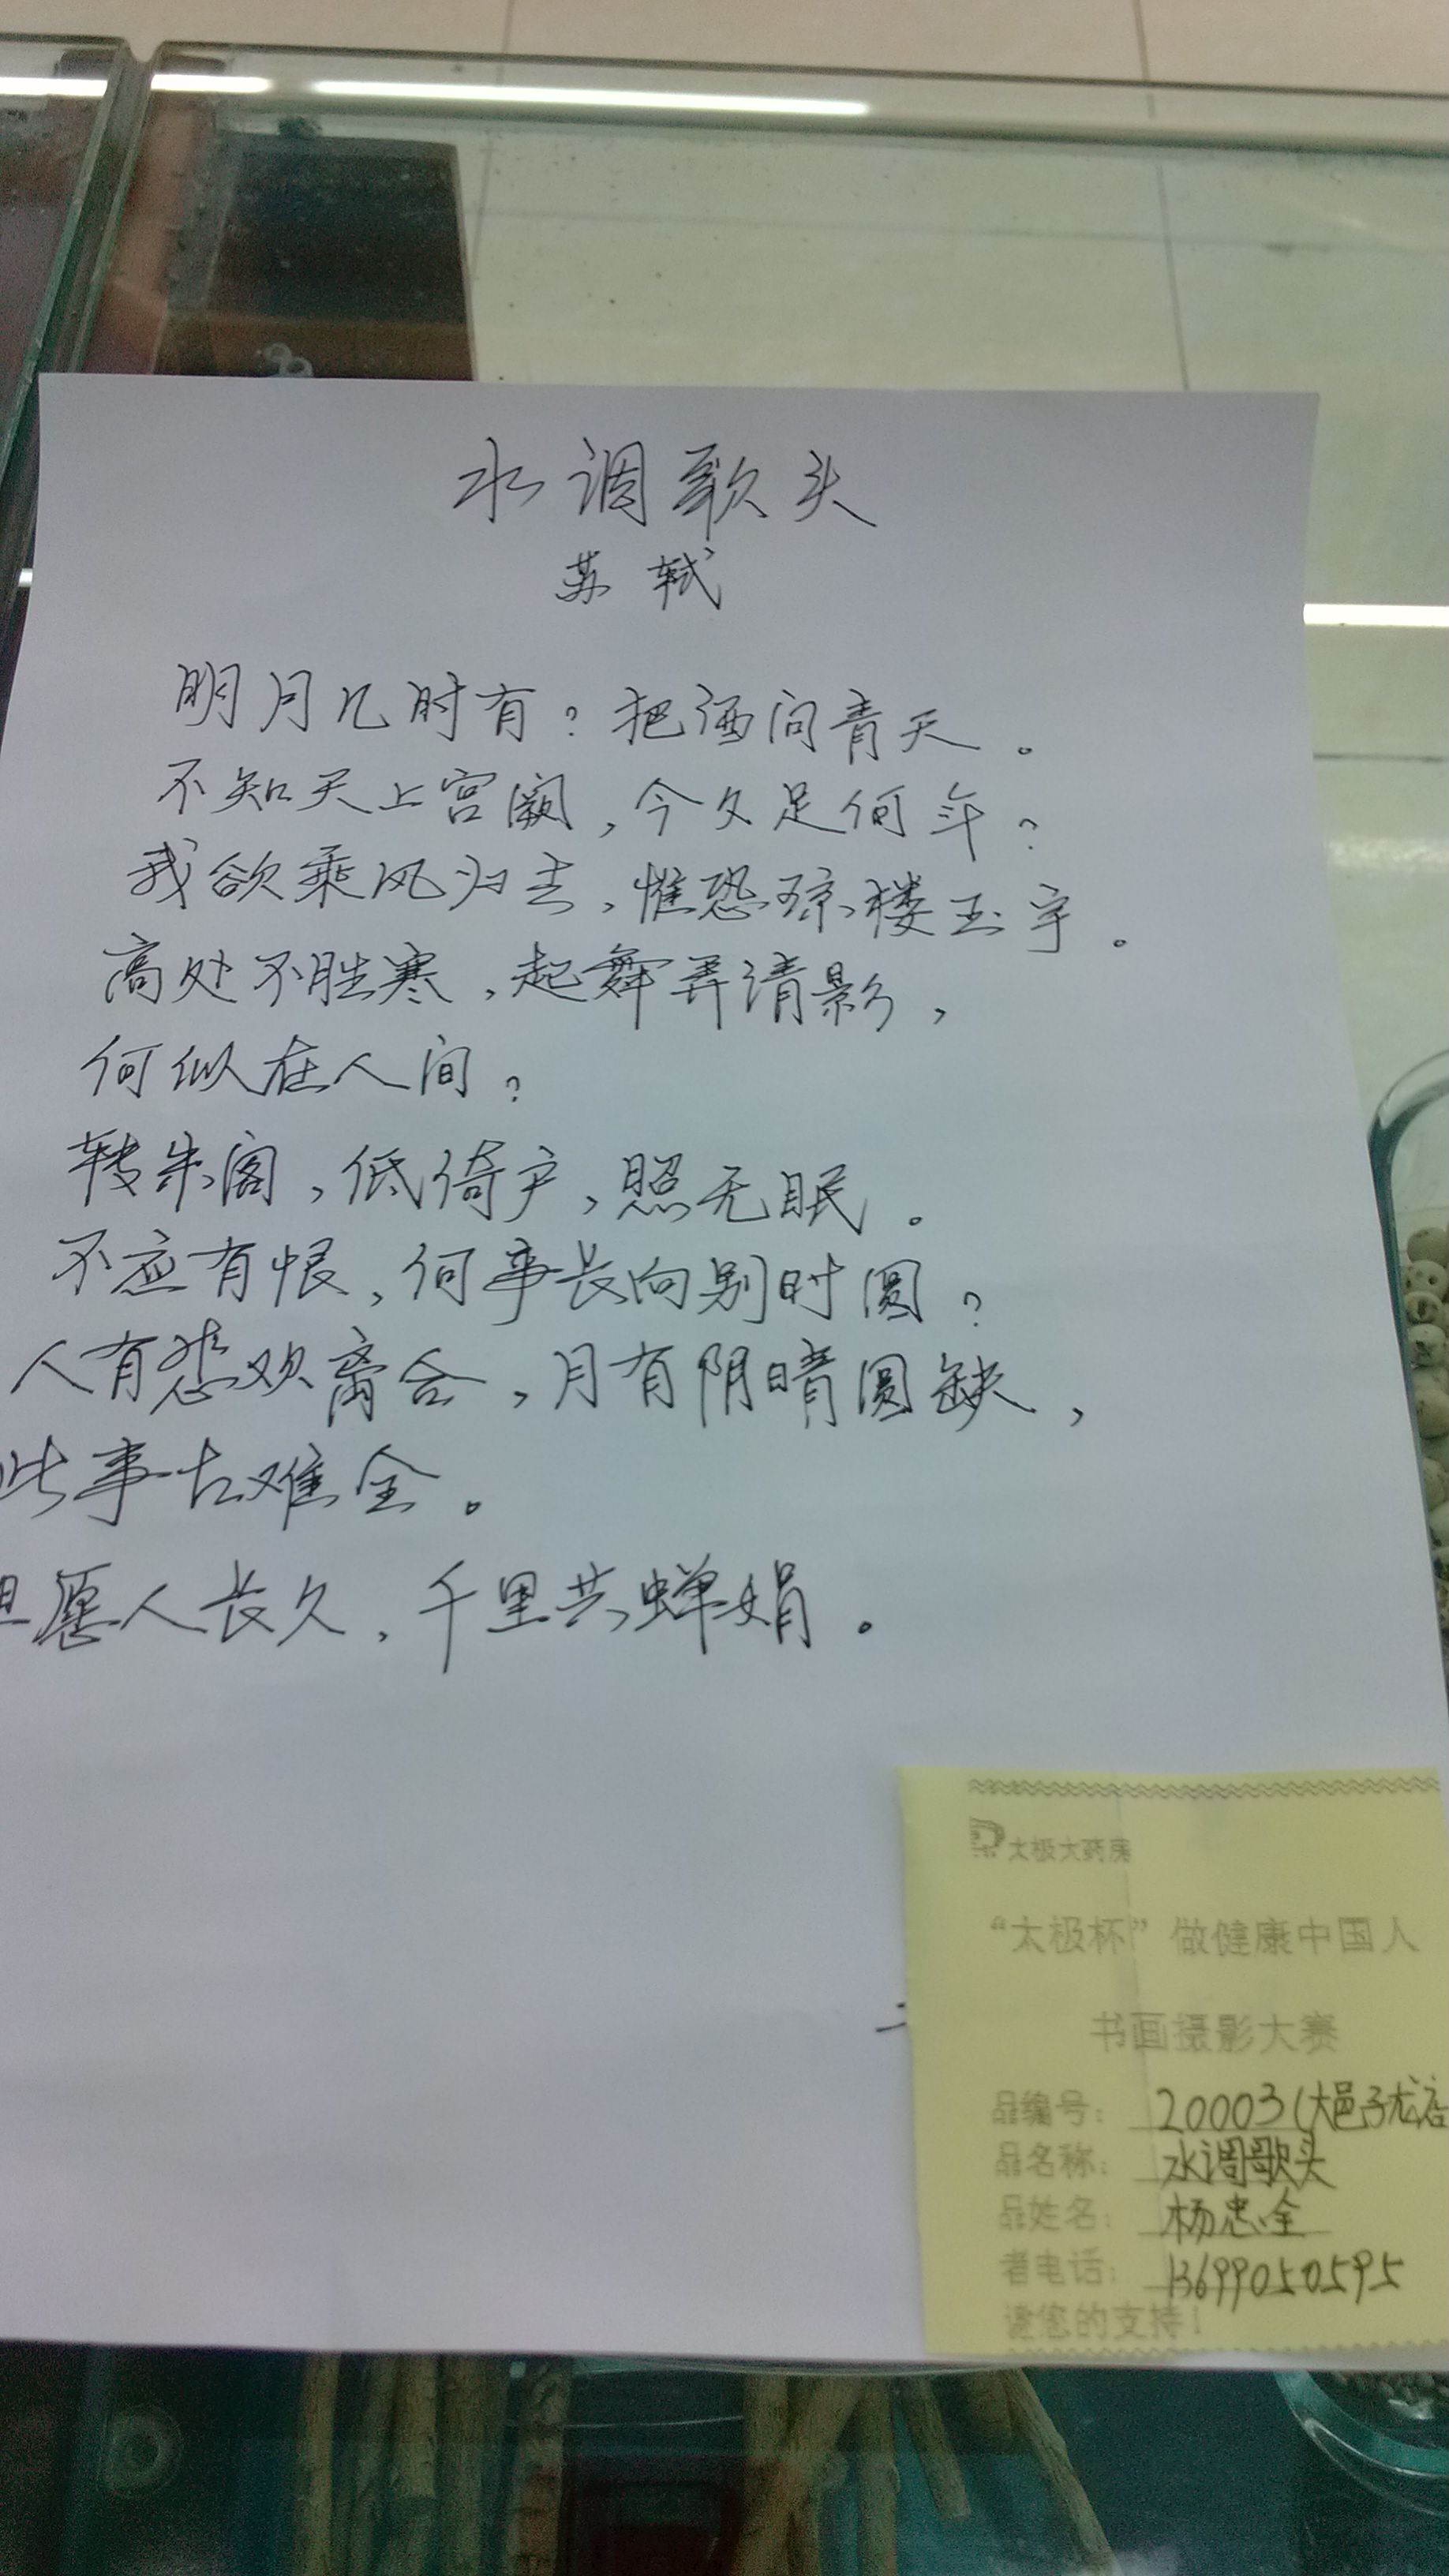 水调歌头
苏轼
明月几时有？把酒问青天。
不知天上宫阙，今夕是何年？
我欲乘风归去，惟恐琼楼玉宇。
高处不胜寒，起舞弄清影，
何似在人间？
转朱阁，低倚户，照无眠。
不应有恨，何事长向别时圆？
人有悲欢离合，月有阴晴圆缺，
此事古难全。
但愿人长久，千里共蝉娟。
太极大药房
“太极杯”做健康中国人
书画摄影大赛
品编号：20003（大邑子龙店
品名称：水调歌头
品姓名：杨忠全
者电话：13699050595
谢您的支持！